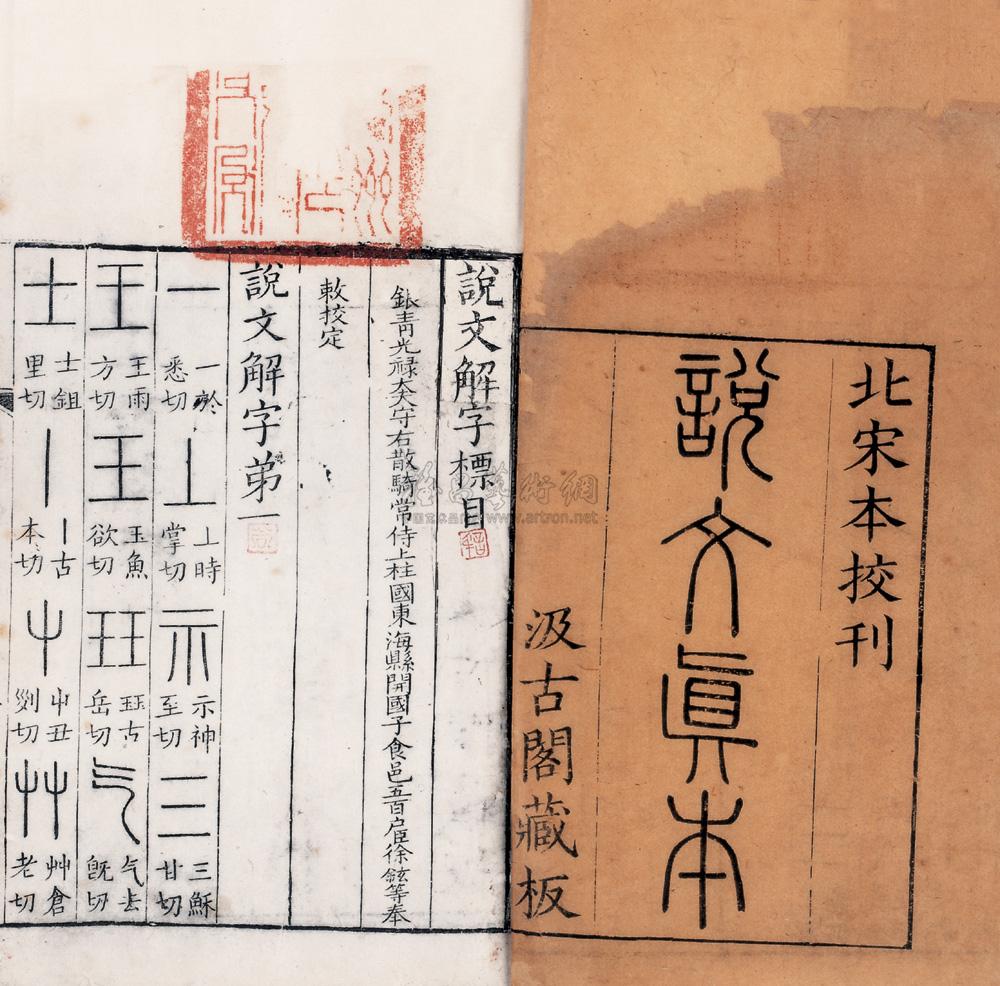 北宋本挍刊
說文眞本
汲古閣藏板
說文解字標目
銀青光禄大夫守右散騎常侍上柱國東海縣開國子食邑五百户臣徐鉉等奉
敕挍定
說文解字弟一
一 一於悉切 丄 丄時掌切 示 示神至切 三 三穌甘切
王 王雨方切 王 玉魚欲切 玨 玨古岳切 气 气去旣切
士 士鉏里切 丨 丨古本切 屮 屮丑列切 艸 艸倉老切
雅昌藝術網
www.artron.net